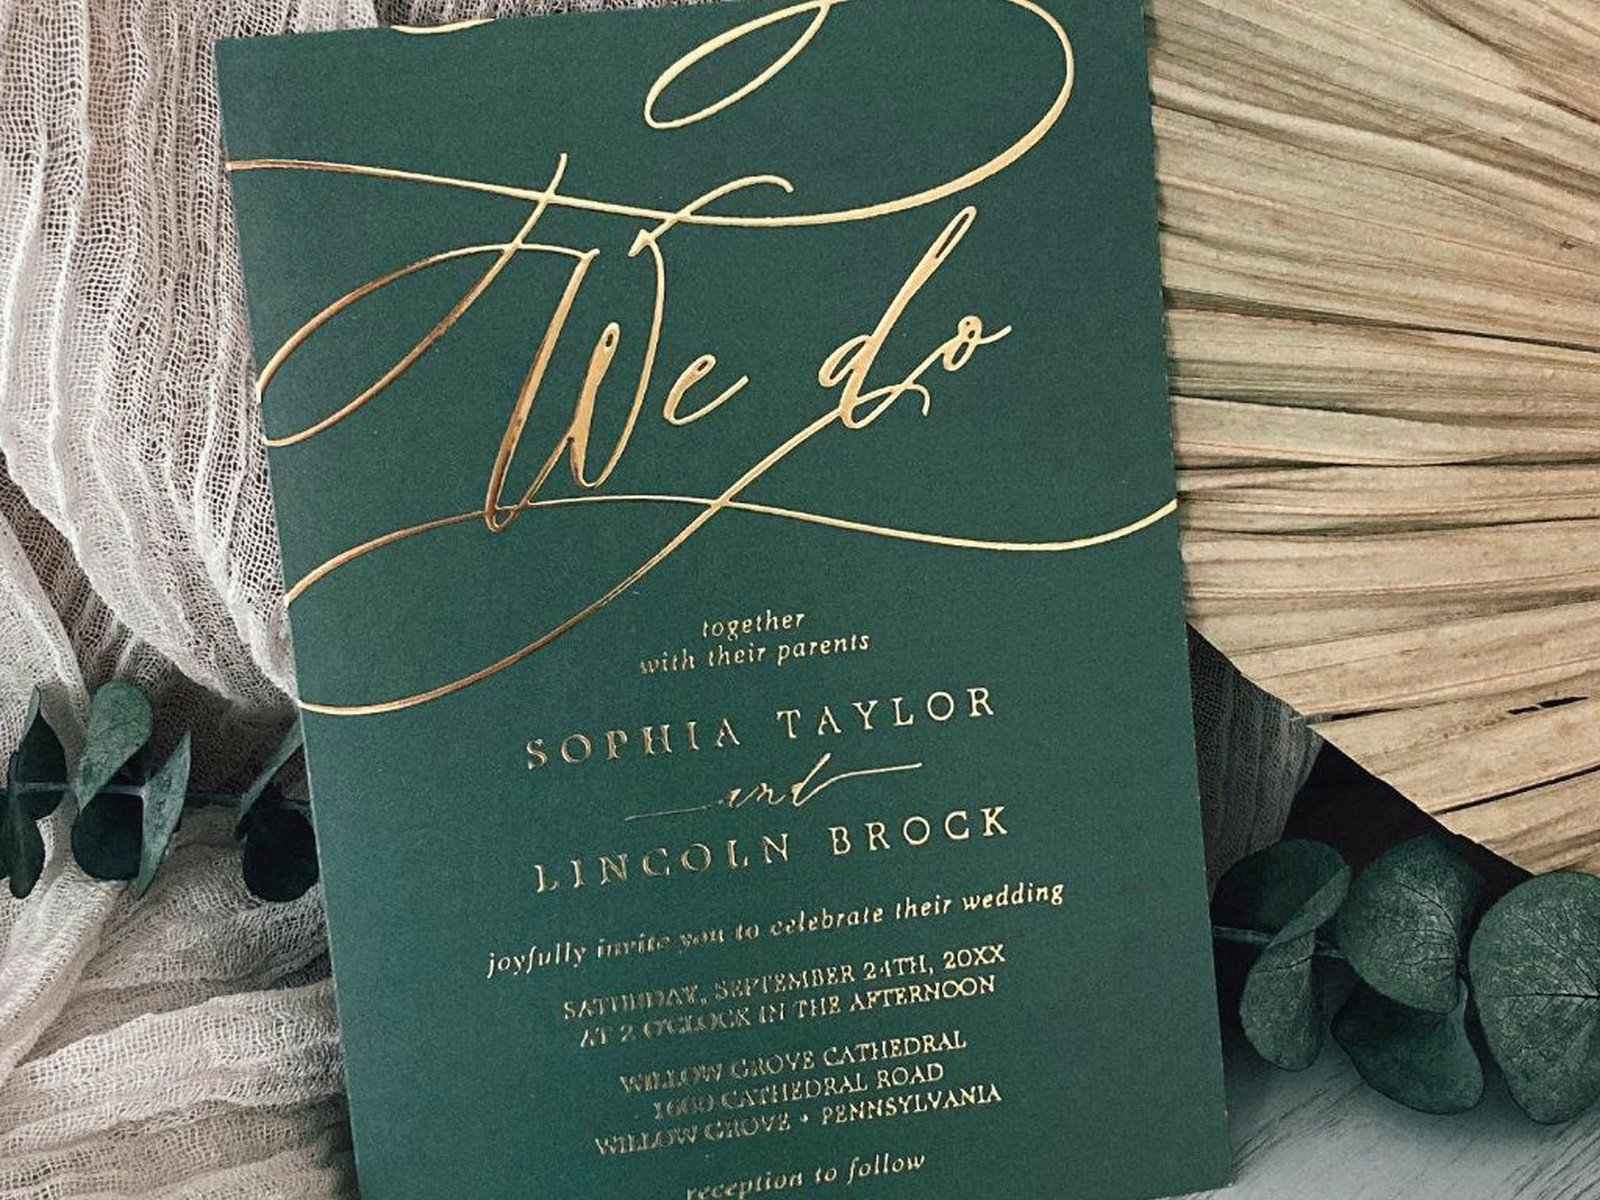 We do
together
with their parents
SOPHIA TAYLOR
and
LINCOLN BROCK
joyfully invite you to celebrate their wedding
SATURDAY, SEPTEMBER 24TH, 20XX
AT 2 O'CLOCK IN THE AFTERNOON
WILLOW GROVE CATHEDRAL
1600 CATHEDRAL ROAD
WILLOW GROVE • PENNSYLVANIA
reception to follow